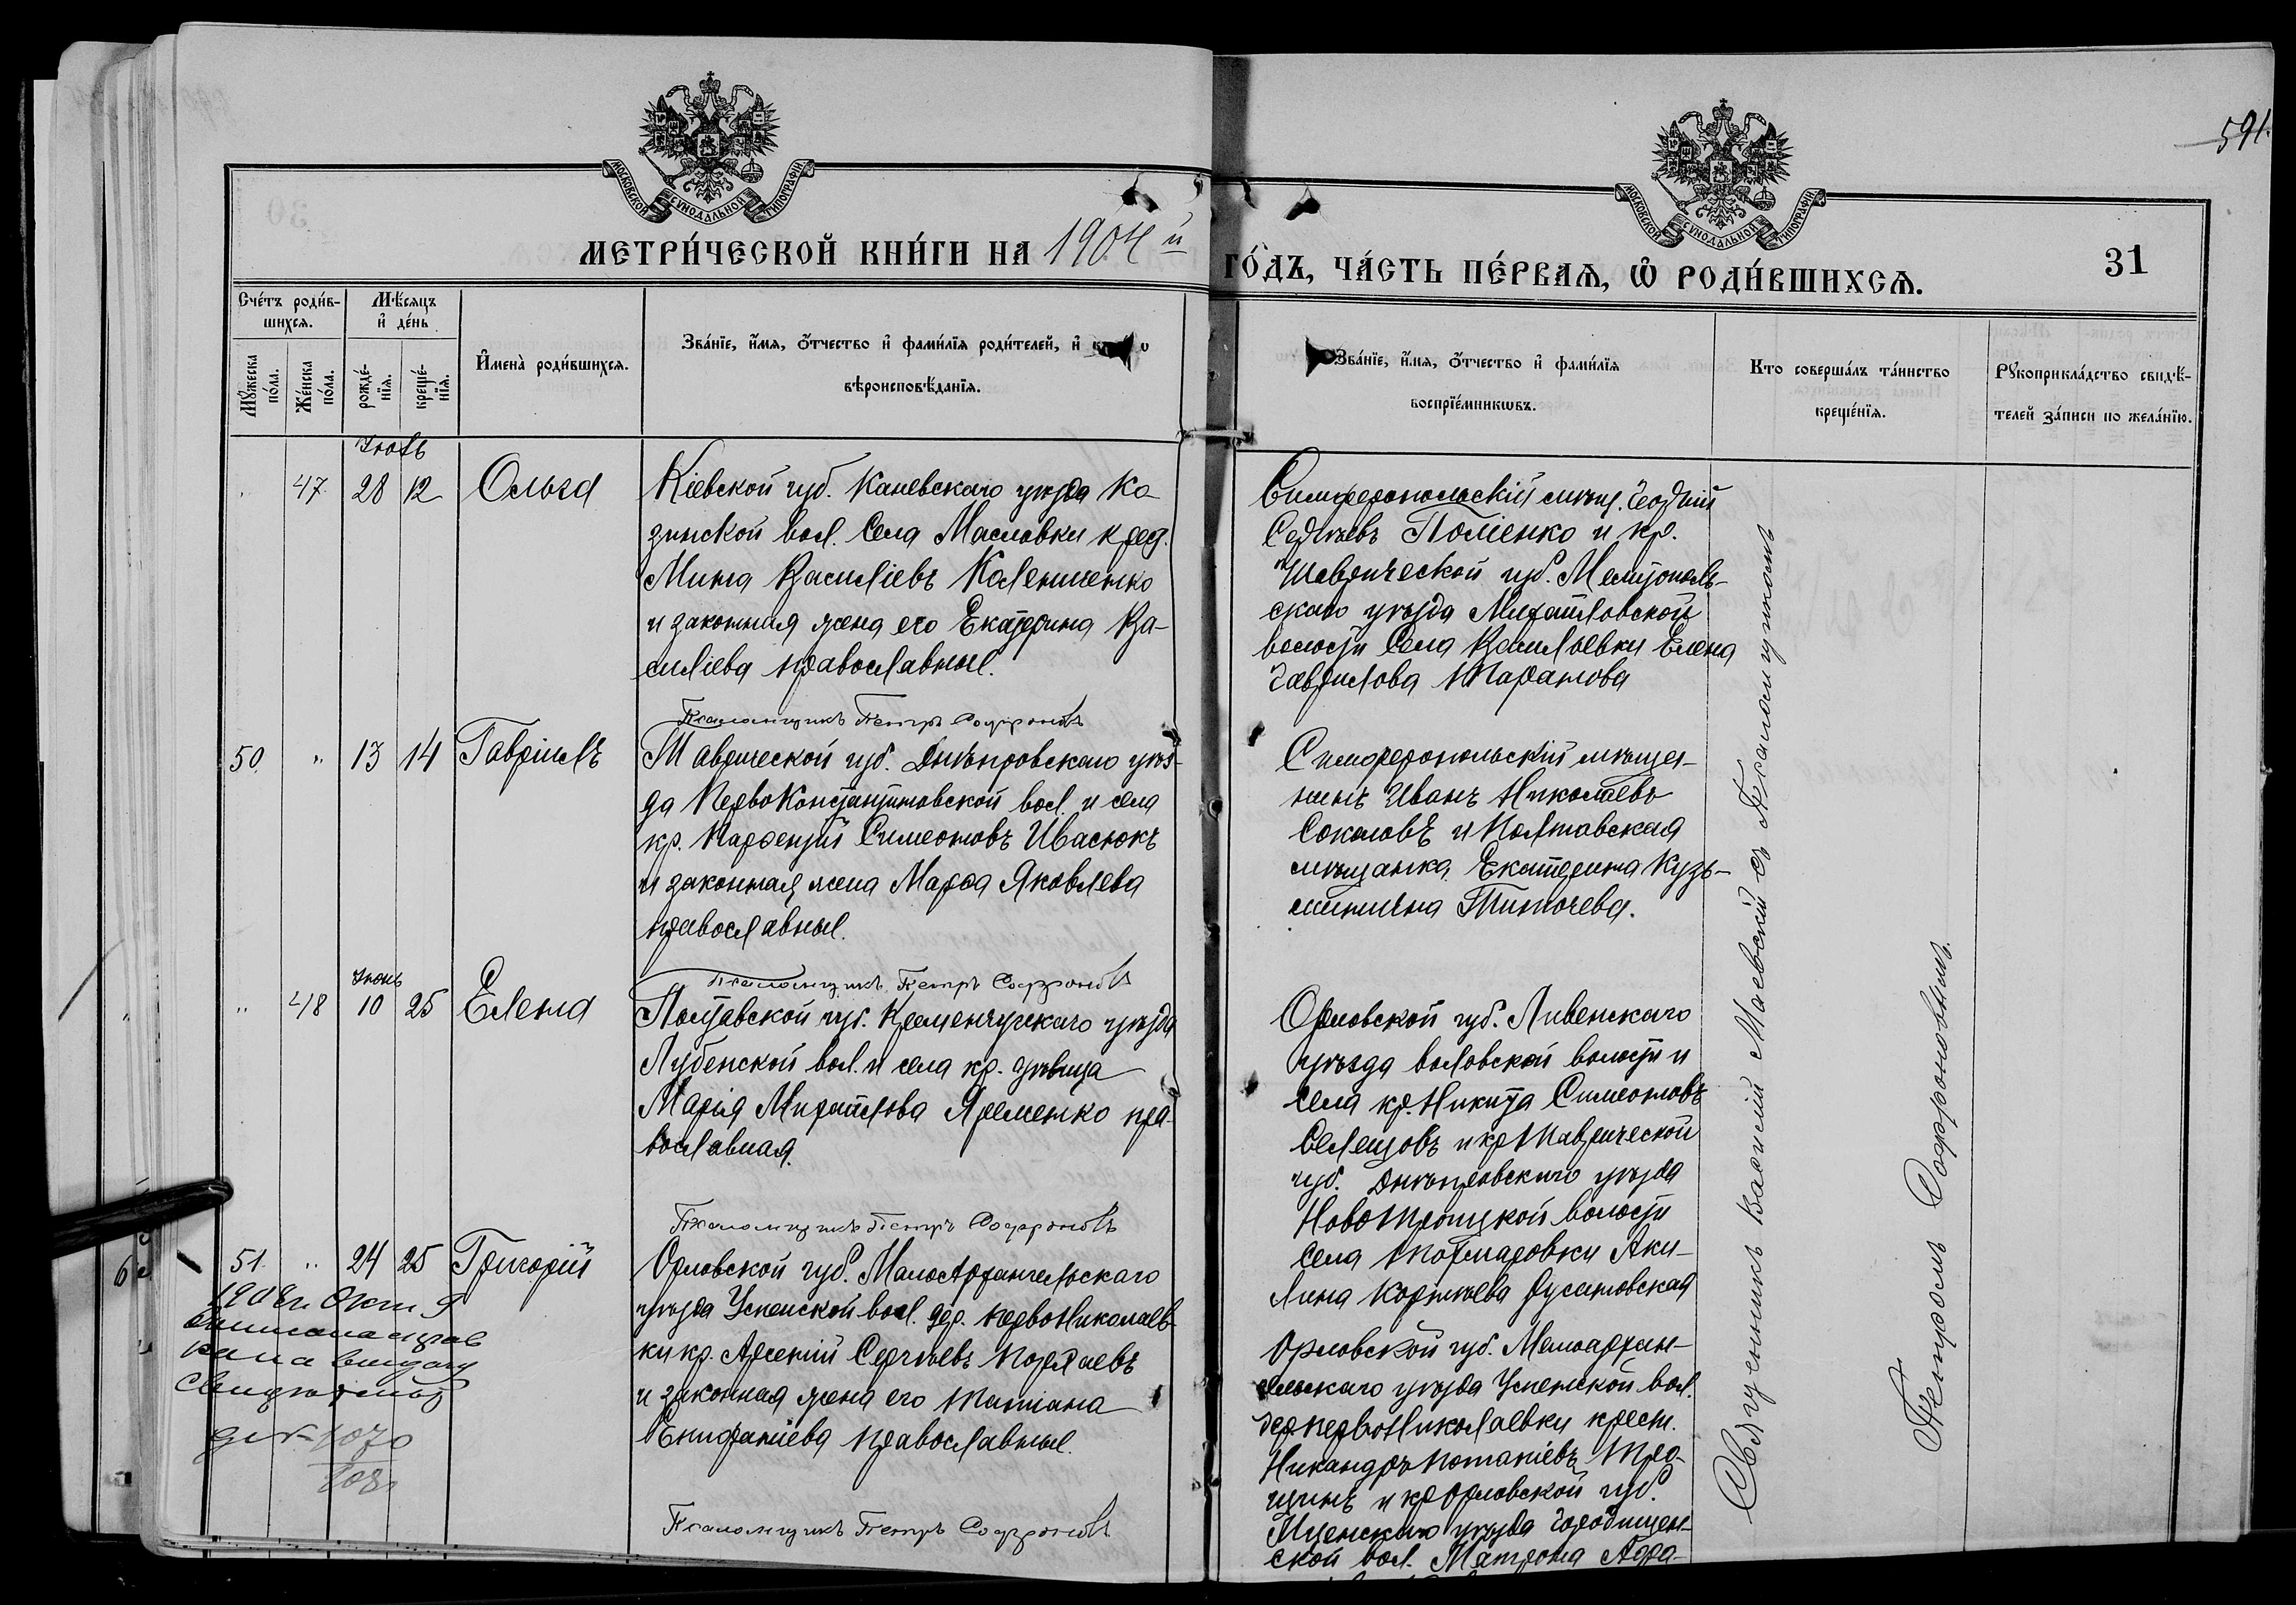 591.
МОСКОВСКОЙ СѴНОДАЛЬНОЙ ТИПОГРАФІИ
МОСКОВСКОЙ СѴНОДАЛЬНОЙ ТИПОГРАФІИ
МЕТРИ́ЧЕСКОЙ КНИ́ГИ НА 1904 й
ГО́ДЪ, ЧА́СТЬ ПЕ́РВАѦ, Ѡ РОДИ́ВШИХСѦ.
31
Сче́тъ роди́в-
шихсѧ.
Мꙋ́жеска по́ла.
Же́нска по́ла.
Мѣ́сѧцъ
и де́нь
рожде́-нїѧ.
креще́-нїѧ.
Имена̀ роди́вшихсѧ.
Зва́нїе, и́мѧ, о́тчество и фами́лїѧ роди́телей, и
вѣроисповѣ́данїѧ.
Зва́нїе, и́мѧ, о́тчество и фами́лїѧ
воспрїе́мникѡвъ.
Кто соверша́лъ та́инство
креще́нїѧ.
Рꙋкоприкла́дство свидѣ́-
телей за́писи по жела́нїю.
47 28 12 Ольга
Кіевской губ. Каневскаго уѣзда Ко
зинской вол. Села Масловки
Мина Василіевъ Калениченко
и законная жена его Екатерина Ва-
силіева православные.
Псаломщикъ Петръ Софроновъ
Симферопольскій мѣщ. Георгій
Сергѣевъ Поліенко и кр.
Таврической губ. Мелитополь-
скаго уѣзда Михайловской
волости Села Васильевки Елена
Гаврилова Таранова
50. " 13 14 Гавріилъ
Таврической губ. Днѣпровскаго уѣз-
да ПервоКонстантиновской вол. и села
кр. Парфентій Симеоновъ Ивасюкъ
и законная жена Марфа Яковлева
православные.
Псаломщикъ Петръ Софроновъ
Симферопольскій мѣща-
нинъ Иванъ Николаевъ
Соколовъ и Полтавская
мѣщанка Екатерина Кузь-
минична Титочева.
" 48 Іюнь 10 25 Елена
Полтавской губ. Кременчугскаго уѣзда
вол. и села кр. дѣвица
Марія Михайлова Яременко пра-
вославная.
Псаломщикъ Петръ Софроновъ
Орловской губ. Ливенскаго
уѣзда воловской волости и
села кр. Никита Симеоновъ
Селезовъ и кр Таврической
губ. Днѣпровскаго уѣзда
НовоТроицкой волости
села Аки-
лина Корнѣева
51. " 24 25 Григорій
Орловской губ. МалоАрхангельскаго
уѣзда Успенской вол. дер. ПервоНиколаев-
ки кр. Арсеній Сергѣевъ
и законная жена его Татіана
Епифаніева Православные.
Псаломщикъ Петръ Софроновъ
Орловской губ. Малоархан-
гельскаго уѣзда Успенской вол.
дер ПервоНиколаевки крест.
Никандръ Потапіевъ
и кр Орловской губ.
Мценскаго уѣзда Городищен-
ской вол. Матрона
1908 г. Окт 9
1070
Священникъ Василій Маевскій съ Псаломщикомъ
Петромъ Софроновымъ.